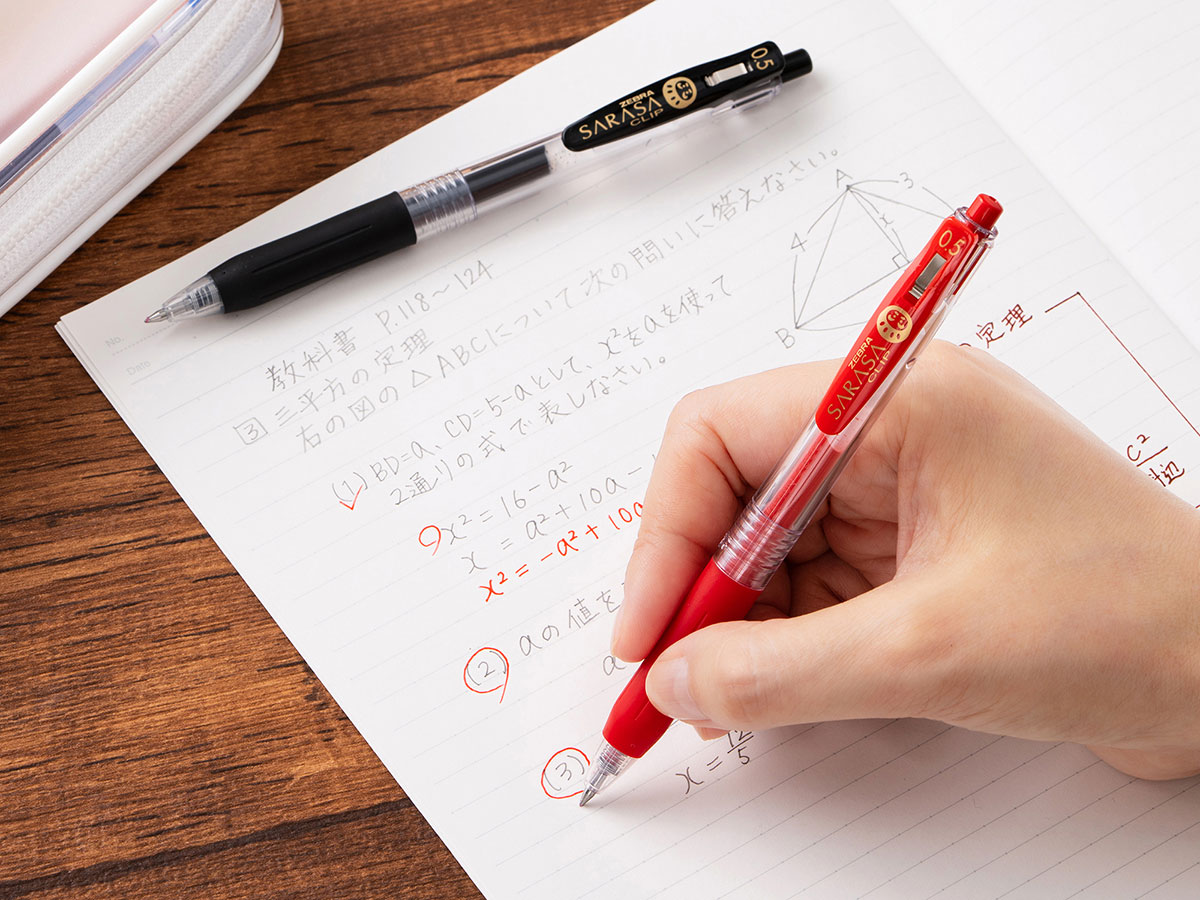 ZEBRA
SARASA
CLIP
0.5
No.
Date
教科書 P.118～124
3 三平方の定理
右の図の△ABCについて次の問いに答えなさい。
(1) BD=a、CD=5-aとして、x²をaを使って
2通りの式で表しなさい。
x²=16-a²
x = a²+10a-
x²=-a²+10a
(2) aの値を
a
(3)
x=12/5
A
3
4
x
B
の定理
c²
ZEBRA
SARASA
CLIP
0.5